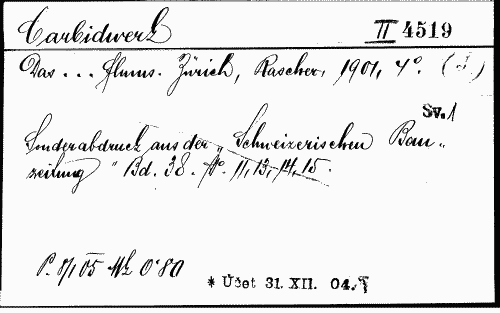 Carbidwerk II 4519
Das ... flums. Zürich, Rascher, 1901, 4°. ( )
Sv.1
Sonderabdruck aus der „Schweizerischen Bau-
zeitung“ Bd. 38. No. 11, 13, 14, 15.
P. 8/1 05 Mk 0'80
* Účet 31. XII. 04.